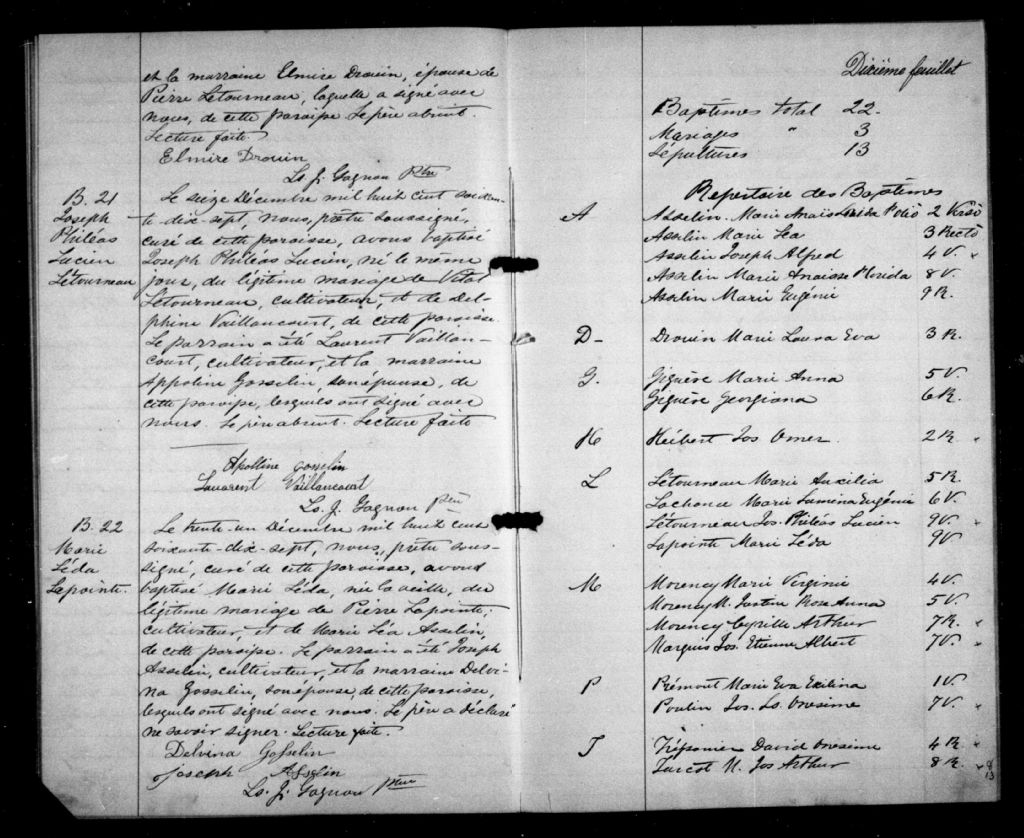 et la marraine Elmire Drouin, épouse de
Pierre Letourneau, laquelle a signé avec
nous, de cette paroisse. Le père absent.
Lecture faite.
Elmire Drouin
Ls. J. Gagnon Ptre
B. 21
Joseph
Philéas
Lucien
Létourneau
Le seize Décembre mil huit cent soixan-
te-dix-sept, nous, prêtre soussigné,
curé de cette paroisse, avons baptisé
Joseph Philéas Lucien, né le même
jour, du légitime mariage de Vital
Létourneau, cultivateur, et de Del-
phine Vaillancourt, de cette paroisse.
Le parrain a été Laurent Vaillan-
court, cultivateur, et la marraine
Appoline Gosselin, son épouse, de
cette paroisse, lesquels ont signé avec
nous. Le père absent. Lecture faite
Apolline gosselin
Laurent Vaillancourt
Ls. J. Gagnon Ptre
B. 22
Marie
Léda
Lapointe.
Le trente-un Décembre mil huit cent
soixante-dix-sept, nous, prêtre sous-
signé, curé de cette paroisse, avons
baptisé Marie Léda, née la veille, du
légitime mariage de Pierre Lapointe,
cultivateur, et de Marie Léa Asselin,
de cette paroisse. Le parrain a été Joseph
Asselin, cultivateur, et la marraine Delvi-
na Gosselin, son épouse de cette paroisse,
lesquels ont signé avec nous. Le père a déclaré
ne savoir signer. Lecture faite.
Delvina Gosselin
joseph Asselin
Ls. J. Gagnon Ptre
Dixième feuillet
Baptêmes total 22
Mariages " 3
Sépultures 13
Repertoire des Baptêmes
A Asselin Marie Anais 2 Verso
Asselin Marie Lea 3 Recto
Asselin Joseph Alfred 4 V. "
Asselin Marie Anaisse Florida 8 V.
Asselin Marie Eugénie 9 R.
D- Drouin Marie Laura Eva 3 R.
G. Giguère Marie Anna 5 V.
Giguère Georgiana 6 R.
H Hébert Jos Omer. 2 R "
L Létourneau Marie Auxilia 5 R
Lachance Marie Eugénie 6 V.
Létourneau Jos. Philéas Lucien 9 V. "
Lapointe Marie Léda 9 V
M Morency Marie Virginie 4 V.
Morency M. Justine Rose Anna 5 V.
Morency Cyrille Arthur 7 R. "
Marquis Jos. Etienne Albert 7 V. "
P Prémont Marie Eva Exilina 1 V
Poulin Jos. Ls. Onesime 7 V. "
T Trépanier David Onesime 4 R "
Turcot M. Jos Arthur 8 R. "
9
13